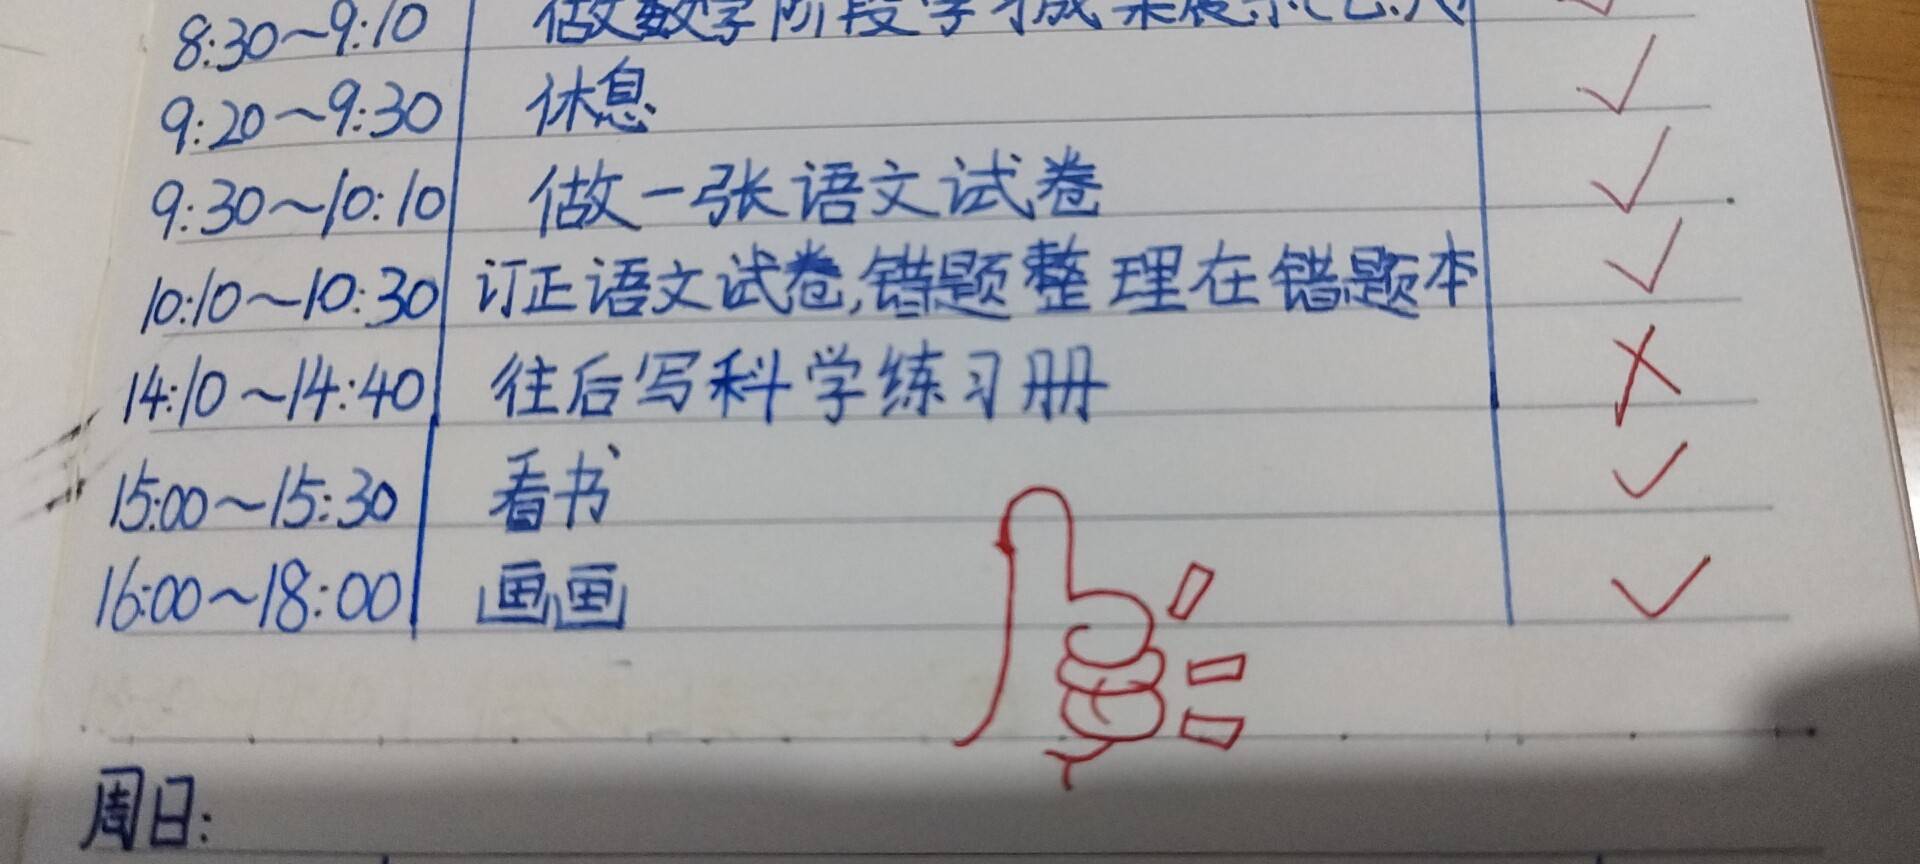 8:30～9:10 做数学阶段学习成果展示
9:20～9:30 休息
9:30～10:10 做一张语文试卷
10:10～10:30 订正语文试卷,错题整理在错题本
14:10～14:40 往后写科学练习册
15:00～15:30 看书
16:00～18:00 画画
周日: